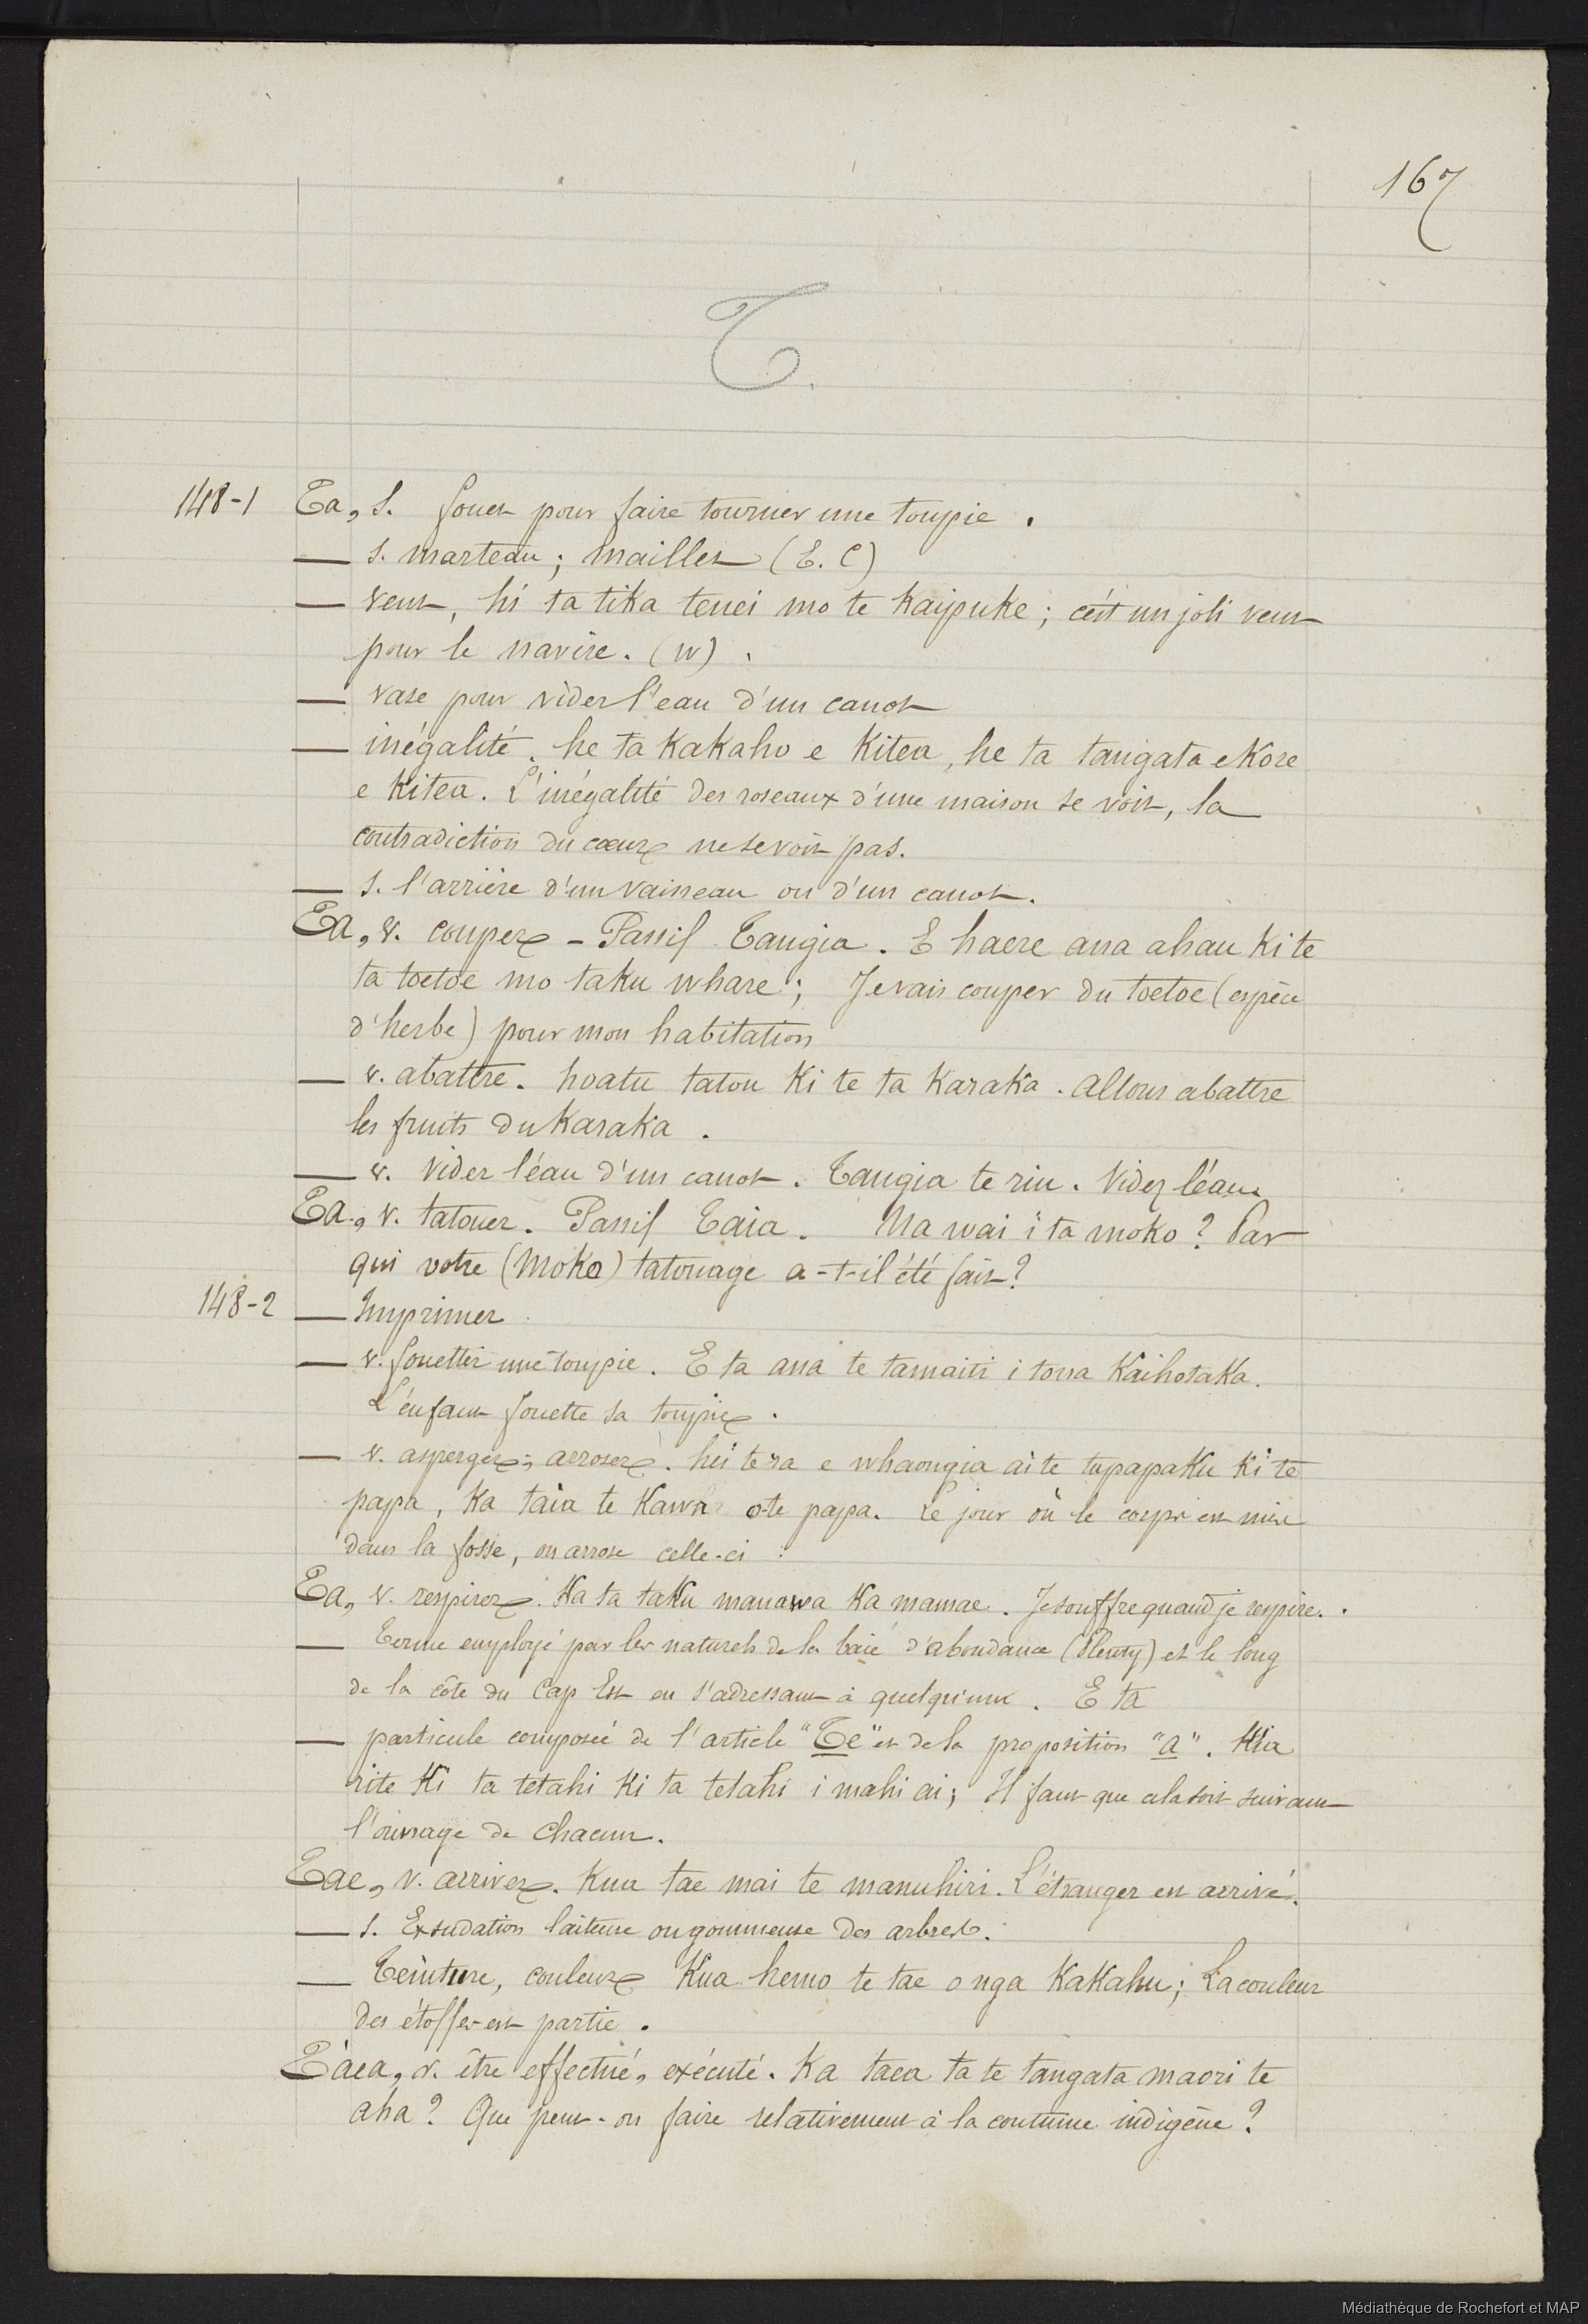 167
T.
148-1 Ta, s. fouet pour faire tourner une toupie.
— s. marteau; maillet (E. C)
— vent, hi ta tika tenei mo te kaipuke; c'est un joli vent
pour le navire. (W).
— vase pour vider l'eau d'un canot
— inégalité. he ta kakaho e kitea, he ta tangata e kore
e kitea. L'inégalité des roseaux d'une maison se voit, la
contradiction du cœur ne se voit pas.
— s. l'arrière d'un vaisseau ou d'un canot.
Ta, v. couper - Passif Tangia. E haere ana ahau ki te
ta toetoe mo taku whare; Je vais couper du toetoe (espèce
d'herbe) pour mon habitation
— v. abattre. hoatu tatou ki te ta karaka. Allons abattre
les fruits du karaka.
— v. vider l'eau d'un canot. Tangia te riu. Videz l'eau
Ta, v. tatouer. Passif Taia. Na wai i ta moko? Par
qui votre (moko) tatouage a-t-il été fait?
148-2 — Imprimer
— v. fouetter une toupie. E ta ana te tamaiti i tona kaihotaka.
L'enfant fouette sa toupie.
— v. asperger; arroser. hei te ra e whaongia ai te tupapaku ki te
papa, ka taia te kawa o te papa. Le jour où le corps est mis
dans la fosse, on arrose celle-ci.
Ta, v. respirer. Ka ta taku manawa ka mamae. Je souffre quand je respire.
— Terme employé par les naturels de la baie d'abondance (Plenty) et le long
de la côte du Cap Est en s'adressant à quelqu'un. E ta
— particule composée de l'article "Te" et de la proposition "a". Kia
rite ki ta tetahi ki ta tetahi i mahi ai; Il faut que cela soit suivant
l'ouvrage de chacun.
Tae, v. arriver. Kua tae mai te manuhiri. L'étranger est arrivé.
— s. Exsudation laiteuse ou gommeuse des arbres.
— Teinture, couleur Kua hemo te tae o nga kakahu; La couleur
des étoffes est partie.
Taea, v. être effectué, exécuté. Ka taea ta te tangata maori te
aha? Que peut-on faire relativement à la coutume indigène?
Médiathèque de Rochefort et MAP